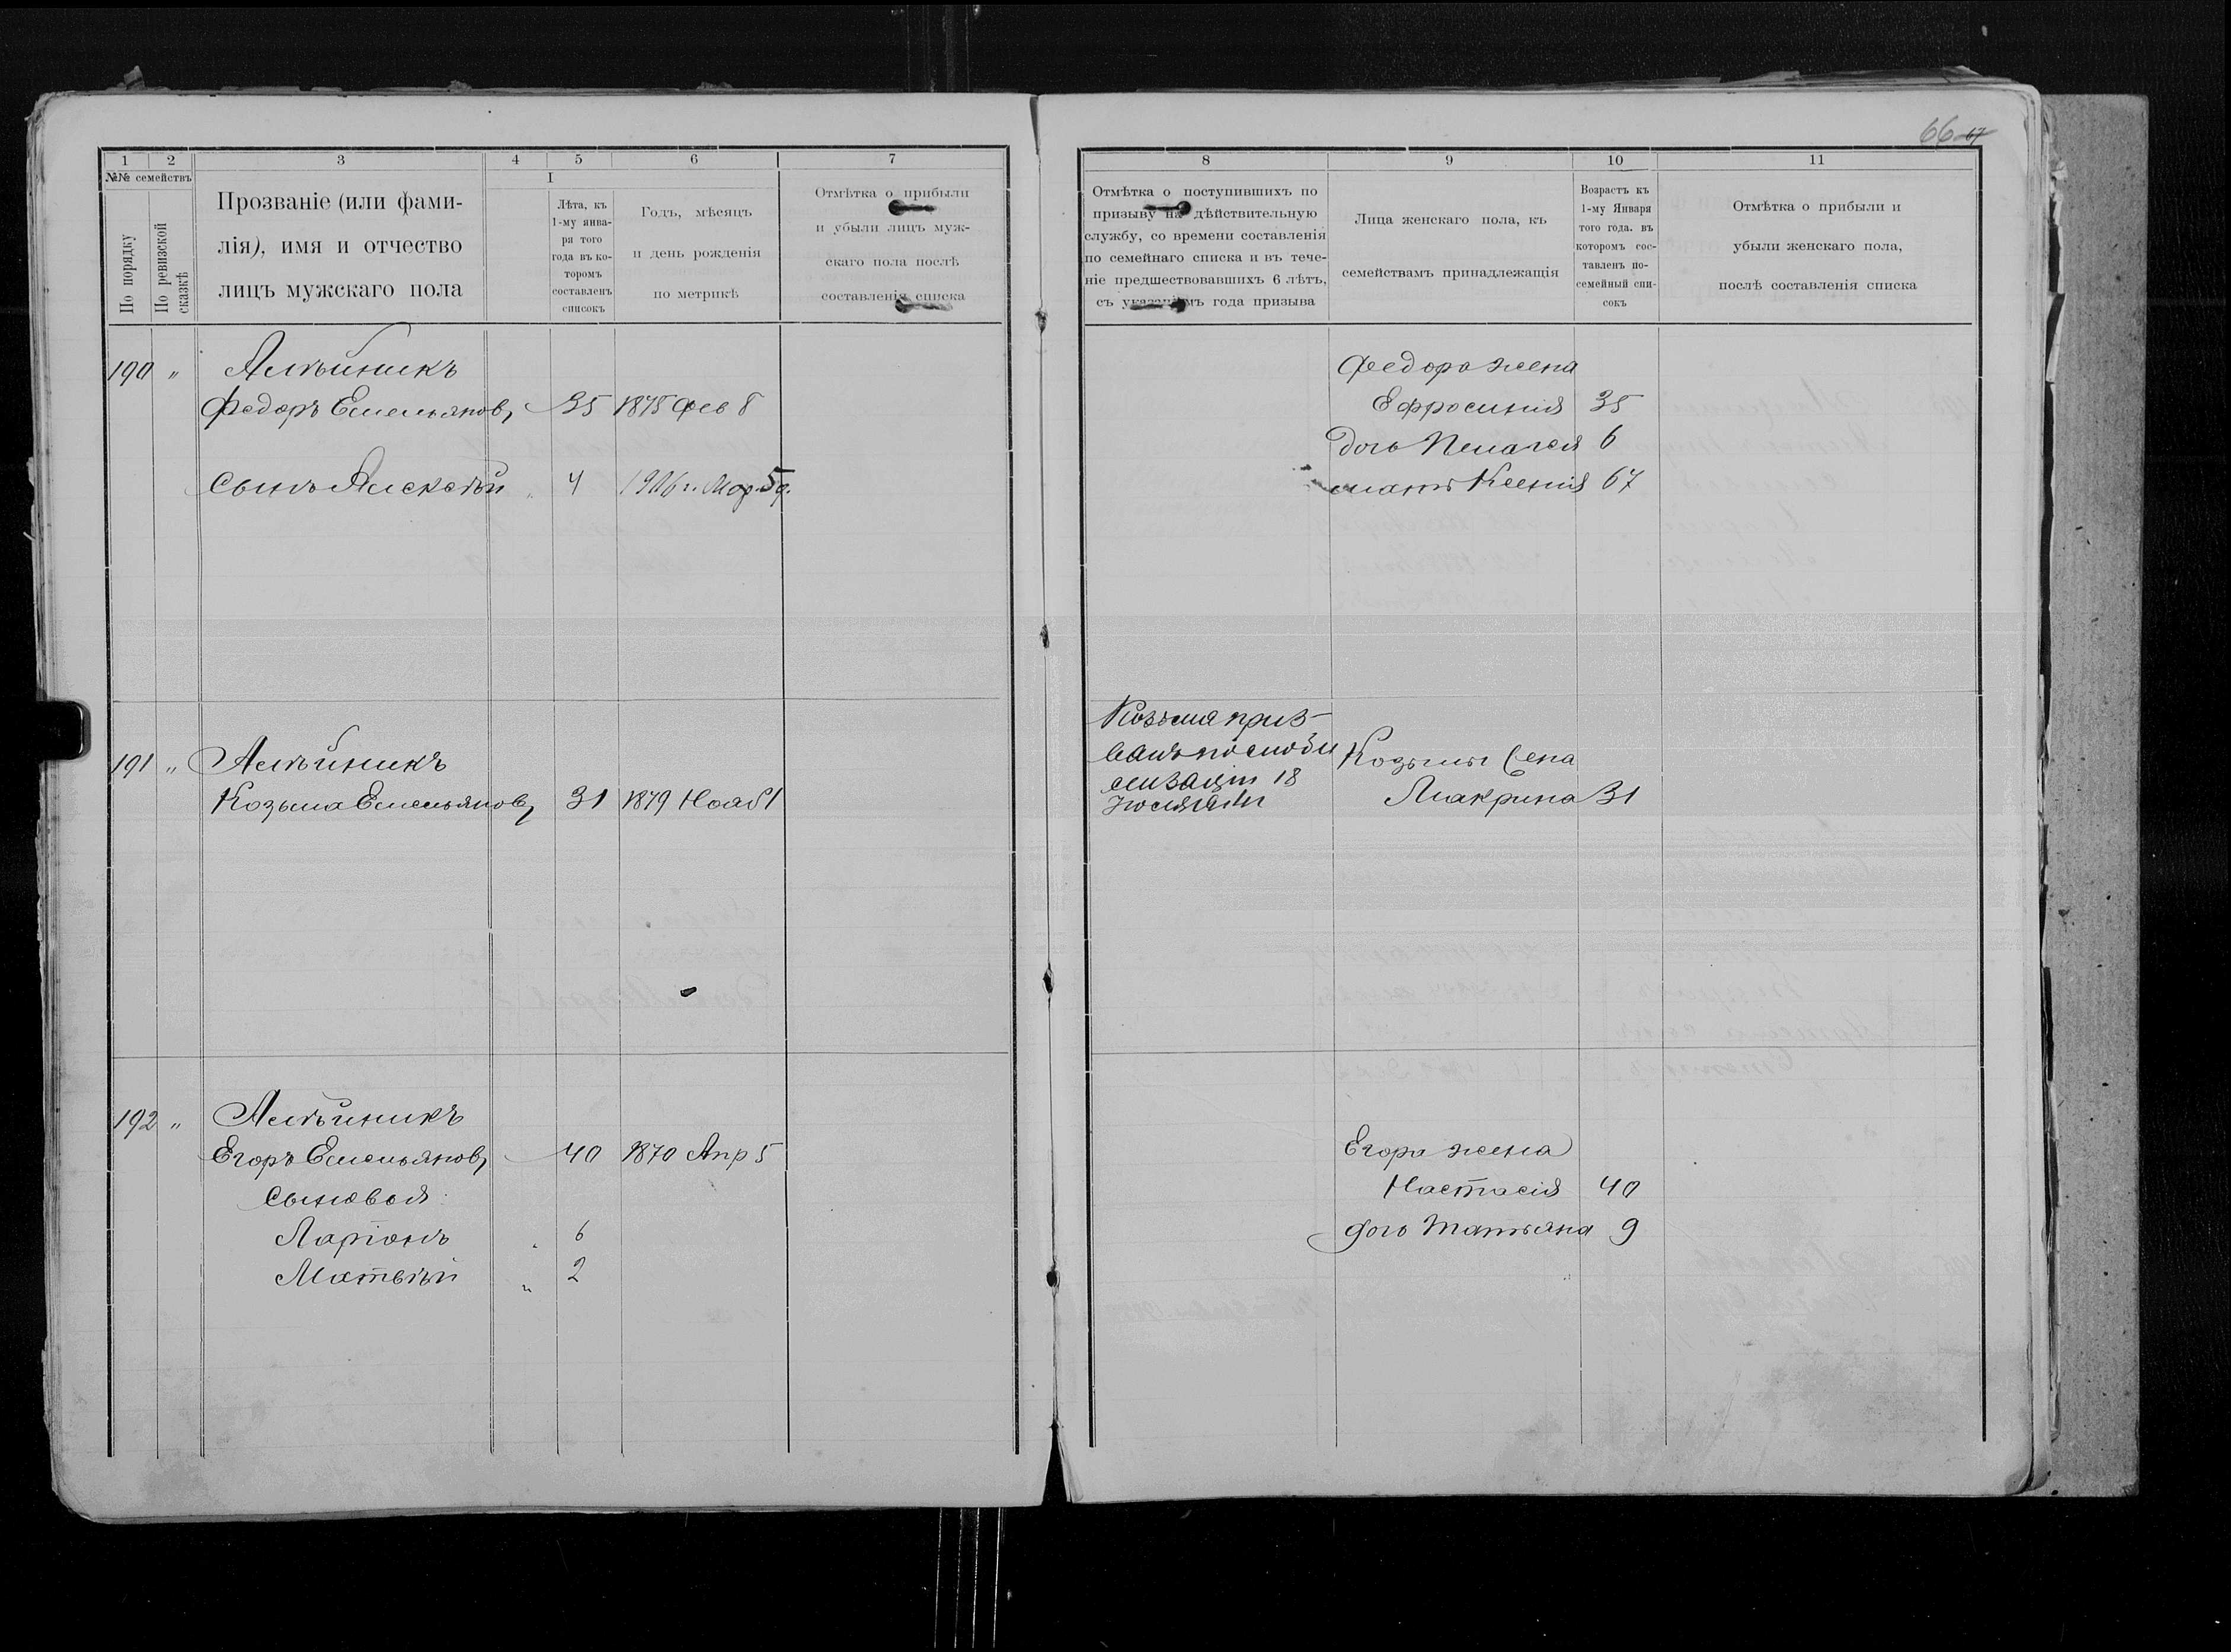 66 67
1 2 3 4 5 6 7
№№ семействъ
По порядку
По ревизской сказкѣ
Прозваніе (или фами-
лія), имя и отчество
лицъ мужскаго пола
I
Лѣта, къ
1-му янва-
ря того
года въ ко-
торомъ
составленъ
списокъ
Годъ, мѣсяцъ
и день рожденія
по метрикѣ
Отмѣтка о прибыли
и убыли лицъ муж-
скаго пола послѣ
составленія списка
190 " Алѣйникъ
Федоръ Емельянов, 35 1875 Фев 8
Сынъ Алексѣй " 4 1906 г. Мар. 5 д.
191 " Алѣйникъ
Козьма Емельянов, 31 1879 Нояб 1
192 " Алѣйникъ
Егоръ Емельянов, 40 1870 Апр 5
Сыновья:
Ларіонъ " 6
Матвѣй " 2
8 9 10 11
Отмѣтка о поступившихъ по
призыву на дѣйствительную
службу, со времени составленія
по семейнаго списка и въ тече-
ніе предшествовавшихъ 6 лѣтъ,
съ указаніемъ года призыва
Лица женскаго пола, къ
семействамъ принадлежащія
Возрастъ къ
1-му Января
того года. въ
которомъ сос-
тавленъ по-
семейный спи-
сокъ
Отмѣтка о прибыли и
убыли женскаго пола,
послѣ составленія списка
Федора жена
Ефросинія 35
дочь Пелагея 6
мать Ксенія 67
Козьма приз-
ванъ по моби
лизаціи 18
Козьмы жена
Макрина 31
Егора жена
Настасія 40
дочь Татьяна 9